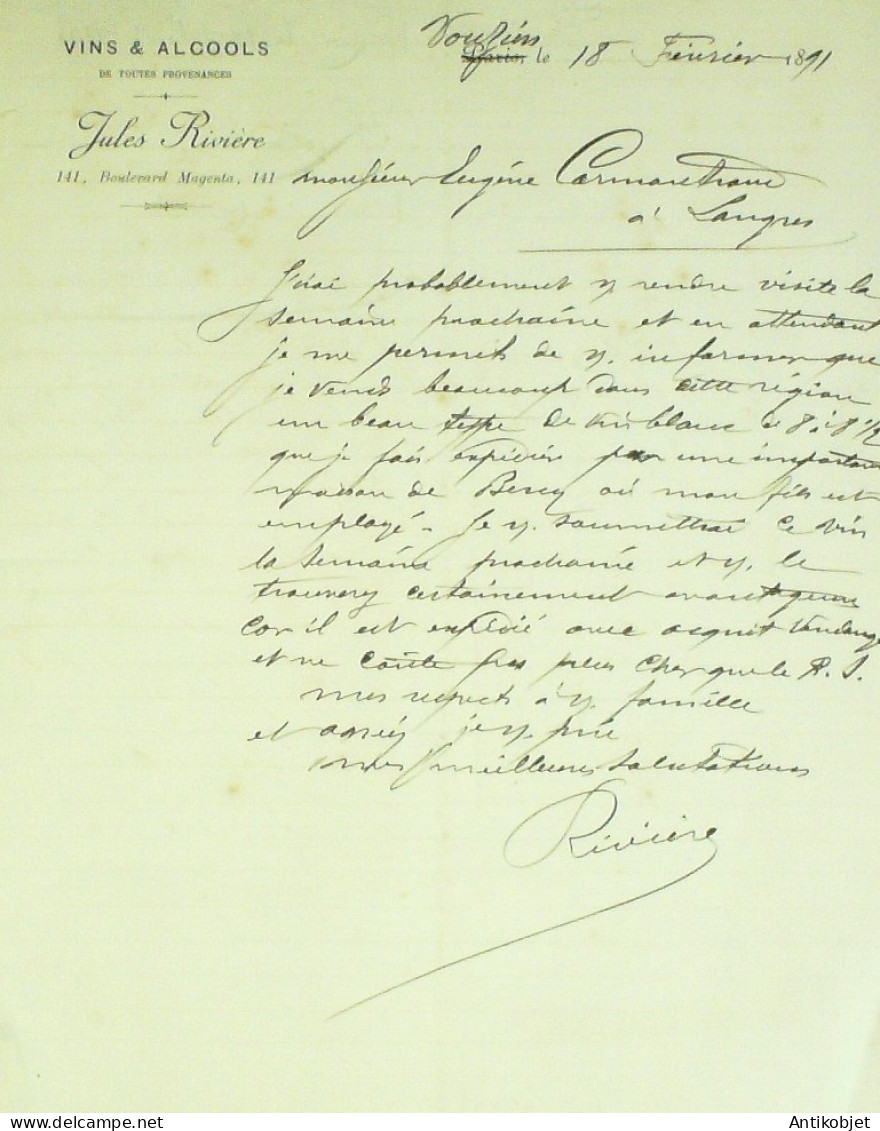 VINS & ALCOOLS
DE TOUTES PROVENANCES
Jules Rivière
141, Boulevard Magenta, 141
Vouziers
Paris, le 18 Février 1891
Monsieur Eugène
à Langres
J'irai probablement v. rendre visite la
semaine prochaine et en attendant
je me permets de v. informer que
je vends beaucoup dans cette région
un beau type de vin blanc de 8 à 8 1/2
que je fais expédier par une importante
maison de Bercy où mon fils est
employé - Je v. soumettrai ce vin
la semaine prochaine et v. le
trouverez certainement avantageux
car il est expédié avec acquit Vendange
et ne coûte pas plus cher que le R. S.
mes respects à v. famille
et agréez je v. prie
mes meilleures salutations
Rivière
Antikobjet